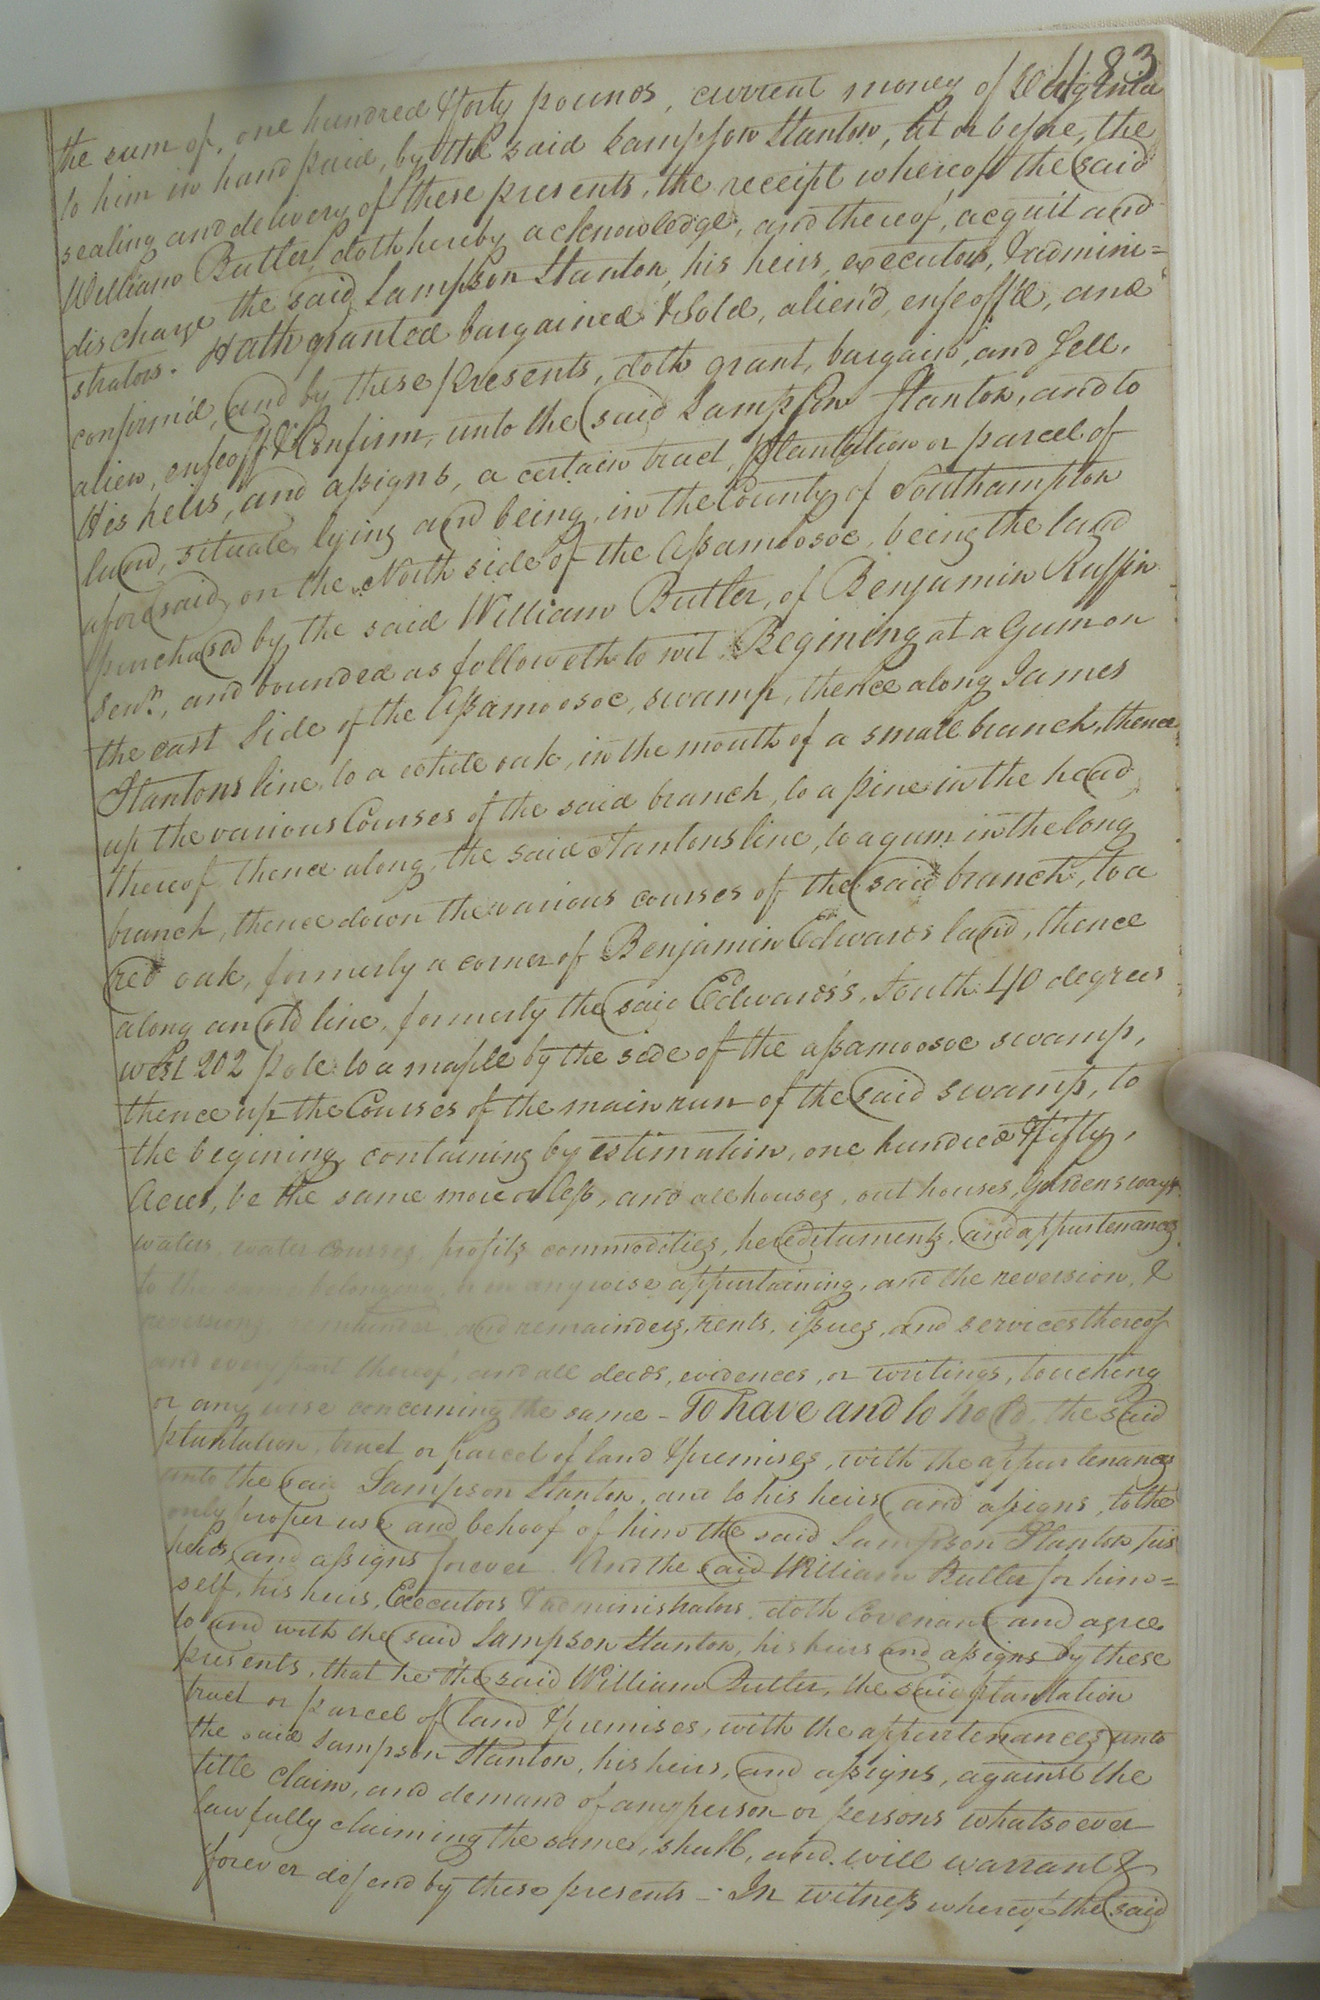 483
the sum of, one hundred & forty pounds, current money of Virginia
to him in hand paid, by the said Sampson Stanton, at or before, the
sealing and delivery of these presents, the receipt whereof the said
William Butler, doth hereby acknowledge, and thereof, acquit and
discharge the said Sampson Stanton, his heirs, executors, & admini=
strators. Hath granted bargained & Sold, alien'd, enfeoff'd, and
confirm'd, and by these presents, doth grant, bargain, and Sell,
alien, enfeoff & Confirm, unto the said Sampson Stanton, and to
His heirs, and assigns, a certain tract, plantation or parcel of
land, situate, lying and being, in the County of Southampton
aforesaid, on the North side of the Assamoosoc, being the land
purchased by the said William Butler, of Benjamin Ruffin
Senr., and bounded as followeth to wit, Begining at a Gum on
the east Side of the Assamoosoc, swamp, thence along James
Stantons line, to a white oak, in the mouth of a small branch, thence
up the various Courses of the said branch, to a pine in the head
thereof thence along, the said Stantons line, to a gum in the long
branch, thence down the various courses of the said branch, to a
red oak, formerly a corner of Benjamin Edwards land, thence
along an old line, formerly the said Edwards's, South 40 degrees
west 202 pole to a maple by the side of the assamoosoc swamp,
thence up the Courses of the main run of the said swamp, to
the begining, containing by estimation, one hundred & fifty,
Acres, be the same more or less, and all houses, out houses, Gardens ways
waters, water courses, profits commodities, hereditaments, and appurtenances
to the same belonging, or in any wise appurtaining, and the reversion, &
reversions, remainder, and remainders, rents, issues, and services thereof
and every part thereof, and all deeds, evidences, or writings, touching
or any wise concerning the same - To have and to hold, the said
plantation, tract or parcel of land & premises, with the appurtenances
unto the said Sampson Stanton, and to his heirs, and assigns, to the
only proper use and behoof of him the said Sampson Stanton his
heirs, and assigns forever. And the said William Butler for him=
self, his heirs, Executors & administrators, doth Covenant and agree
to and with the said Sampson Stanton, his heirs and assigns by these
presents, that he the said William Butler, the said plantation
tract or parcel of land & premises, with the appurtenances unto
the said Sampson Stanton, his heirs, and assigns, against the
title claim, and demand of any person or persons whatsoever
lawfully claiming the same, shall, and will warrant &
forever defend by these presents - In witness whereof the said